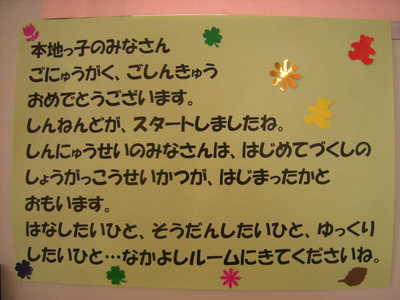 本地っ子のみなさん
ごにゅうがく、ごしんきゅう
おめでとうございます。
しんねんどが、スタートしましたね。
しんにゅうせいのみなさんは、はじめてづくしの
しょうがっこうせいかつが、はじまったかと
おもいます。
はなしたいひと、そうだんしたいひと、ゆっくり
したいひと…なかよしルームにきてくださいね。